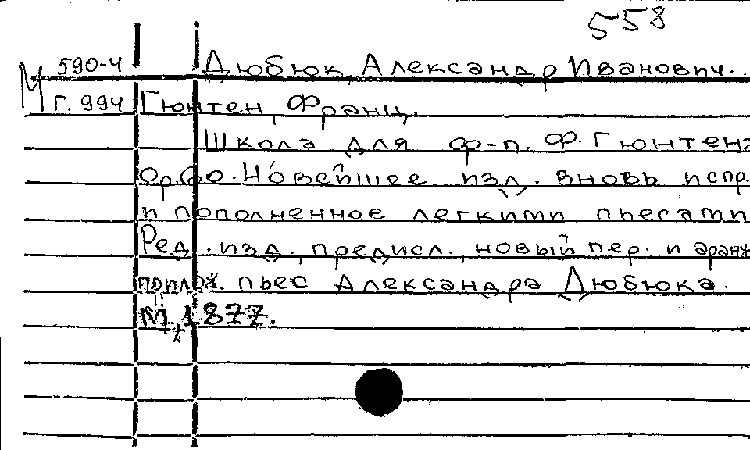 558
590-4 Дюбюк, Александр Иванович.
М Г.994 Гюнтен, Франц.
Школа для ф-п. Ф. Гюнтена
Ор.60. Новейшее изд. вновь испр.
и пополненное легкими пьесами
Ред. изд., предисл., новый пер. и аранж
прилож. пьес Александра Дюбюка.
М, 1877.